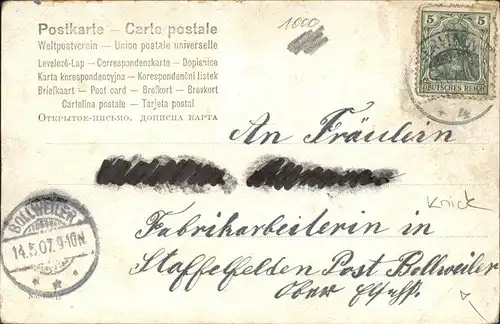 Postkarte – Carte postale
Weltpostverein – Union postale universelle
Levelező-Lap – Correspondenzkarte – Dopisnice
Karta korespondencyjna – Korespondenční lístek
Briefkaart – Post card – Brefkort – Brevkort
Cartolina postale – Tarjeta postal
Открытое-письмо, дописна карта
1000
5 5
DEUTSCHES REICH
An Fräulein
Knick
Fabrikarbeiterin in
Staffelfelden Post Bollweiler
Ober Elsass.
BOLLWEILER
14.5.07. 9-10N